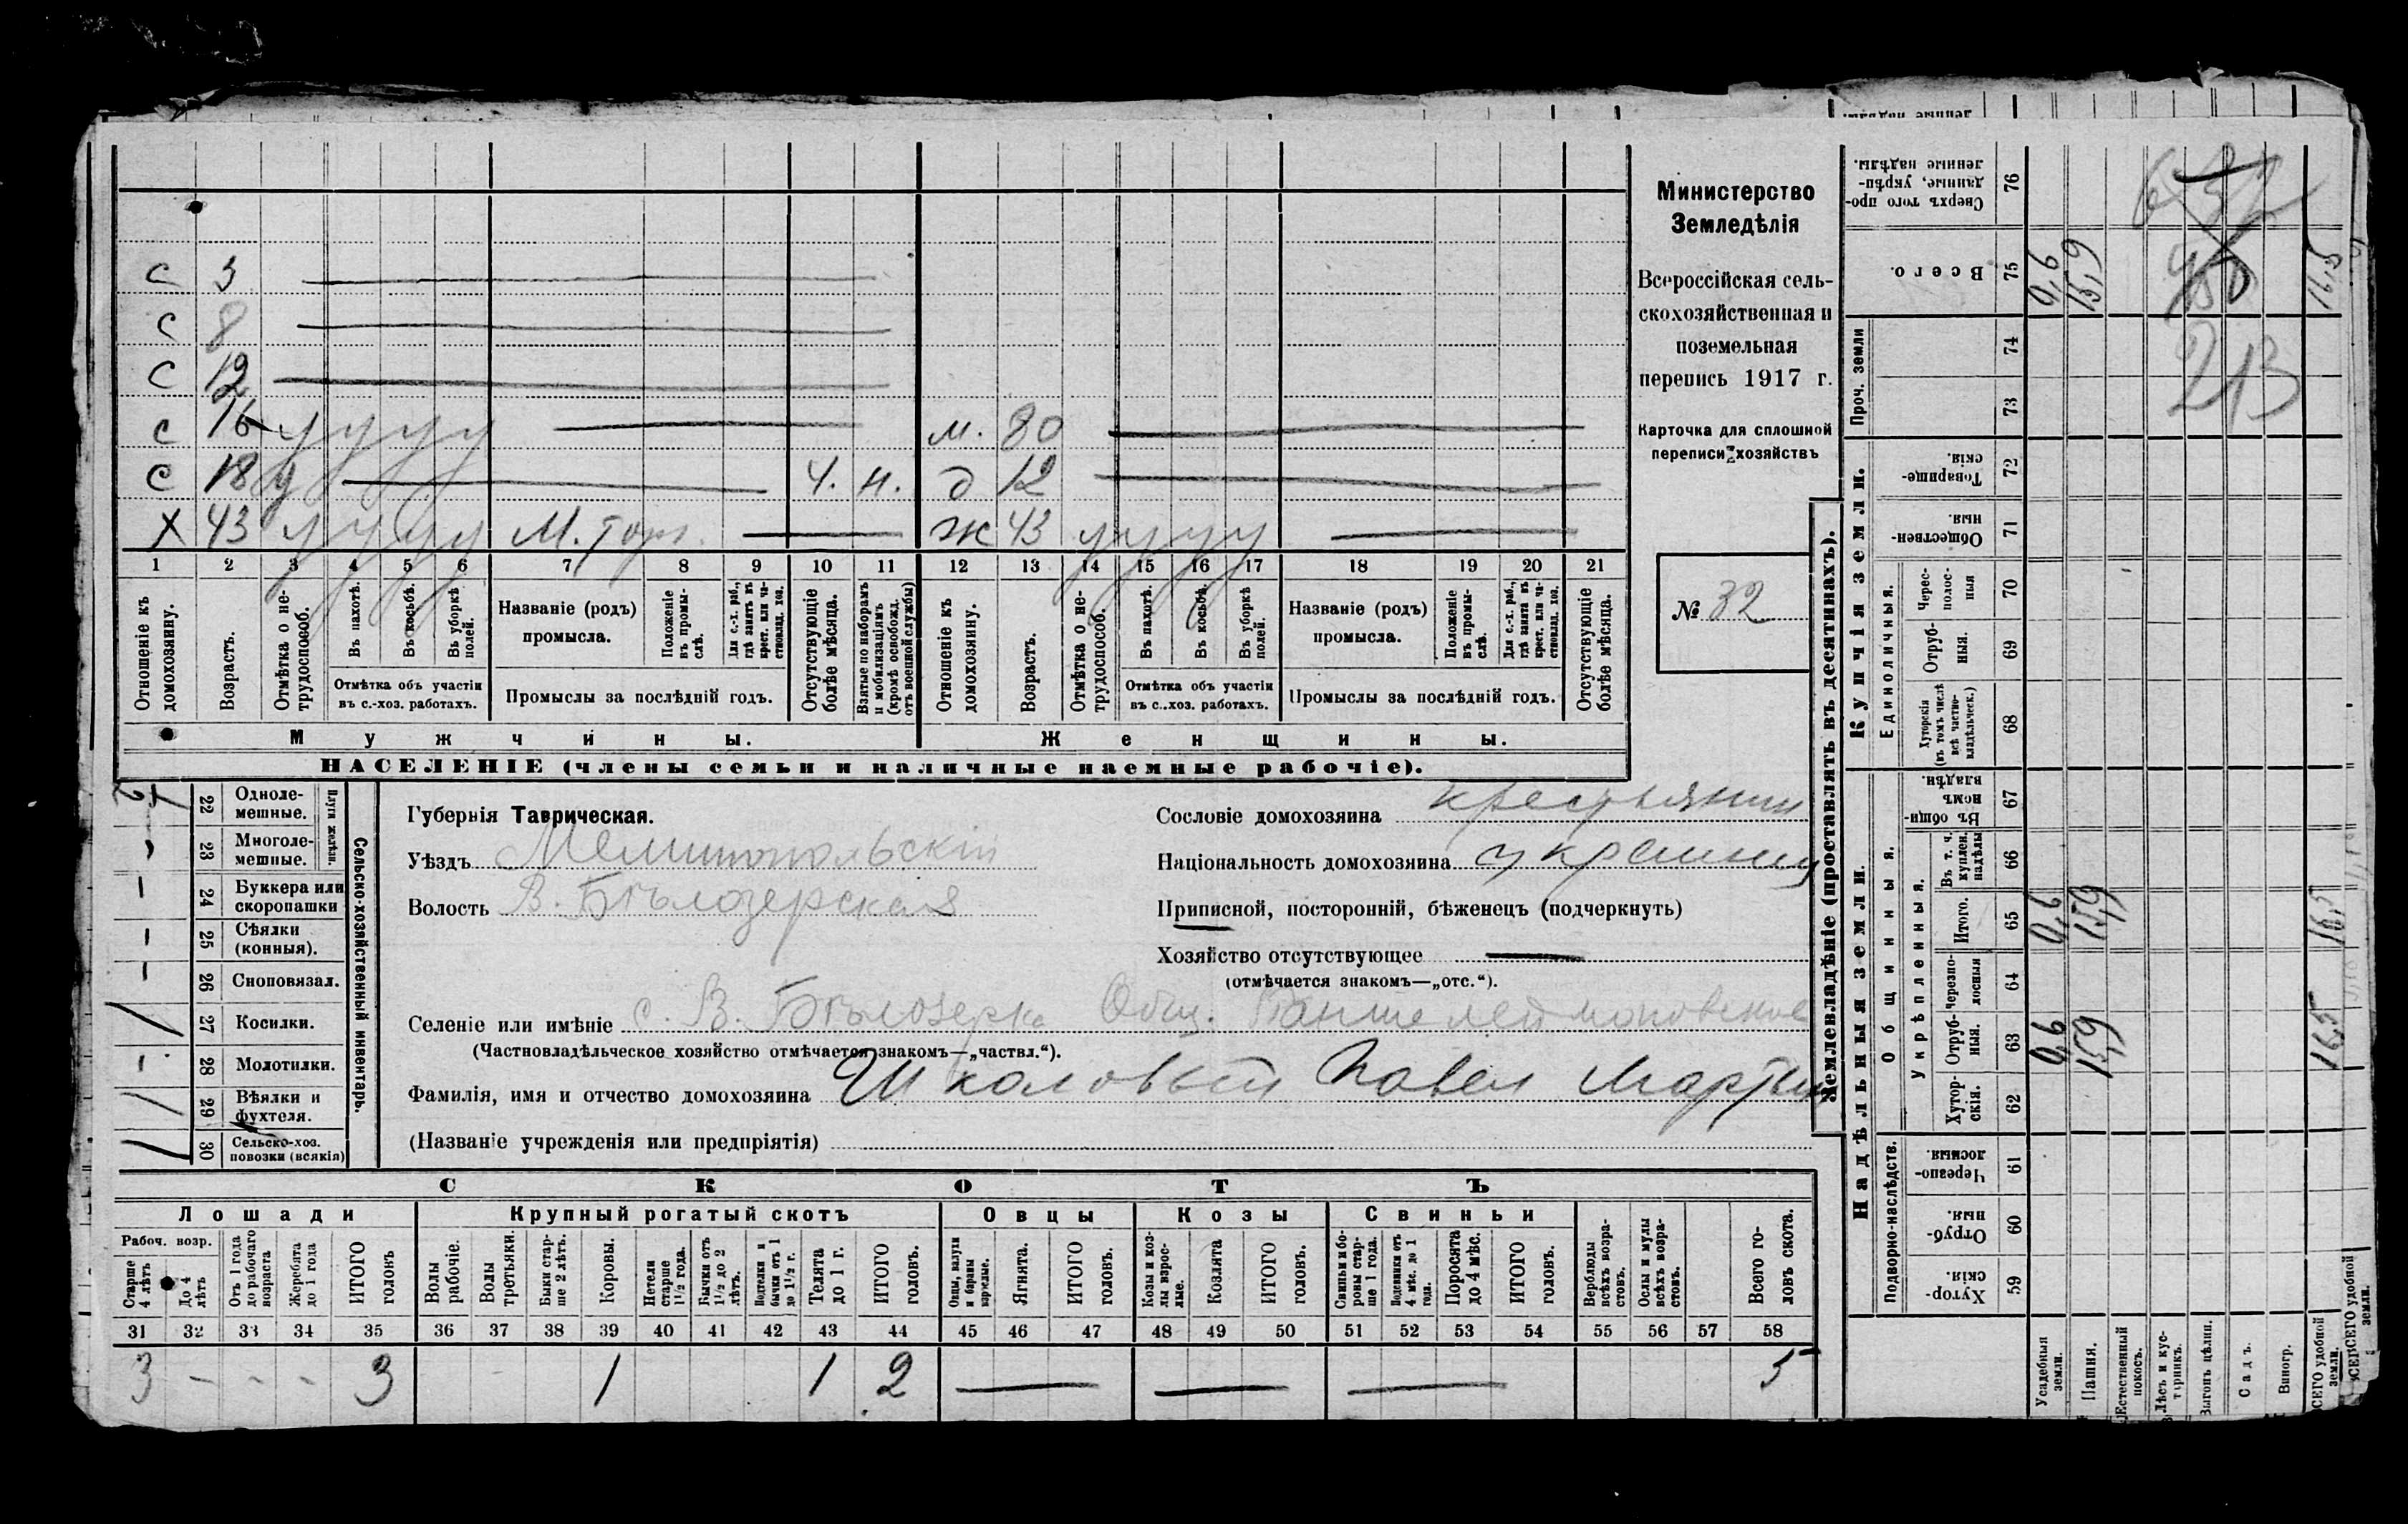 С 3
С 8
С 12
С 16 у у у у
м. 80
С 18 у
ч. н.
д 12
Х 43 у у у у М. Торг.
ж 43 у у у у
1 2 3 4 5 6 7 8 9 10 11 12 13 14 15 16 17 18 19 20 21
Отношеніе къ домохозяину.
Возрастъ.
Отмѣтка о не-трудоспособ.
Въ пахотѣ.
Въ косьбѣ.
Въ уборкѣ полей.
Отмѣтка объ участіи въ с.-хоз. работахъ.
Названіе (родъ) промысла.
Положеніе въ промы-слѣ.
Для с.-х. раб., гдѣ занятъ въ крест. или ча-стновлад. хоз.
Промыслы за послѣдній годъ.
Отсутствующіе болѣе мѣсяца.
Взятые по наборамъ и мобилизаціямъ (кромѣ освобожд. отъ военной службы)
Отношеніе къ домохозяину.
Возрастъ.
Отмѣтка о не-трудоспособ.
Въ пахотѣ.
Въ косьбѣ.
Въ уборкѣ полей.
Отмѣтка объ участіи въ с.-хоз. работахъ.
Названіе (родъ) промысла.
Положеніе въ промы-слѣ.
Для с.-х. раб., гдѣ занята въ крест. или ча-стновлад. хоз.
Промыслы за послѣдній годъ.
Отсутствующіе болѣе мѣсяца.
Мужчины.
Женщины.
НАСЕЛЕНІЕ (члены семьи и наличные наемные рабочіе).
Министерство
Земледѣлія
Всероссійская сель-
скохозяйственная и
поземельная
перепись 1917 г.
Карточка для сплошной
переписи хозяйствъ
№ 32
22 Одноле-мешные.
23 Многоле-мешные.
Плуги желѣзн.
24 Буккера или скоропашки
25 Сѣялки (конныя).
26 Сноповязал.
27 Косилки. 1
28 Молотилки.
29 Вѣялки и фухтеля. 1
30 Сельско-хоз. повозки (всякія) 1
Сельско-хозяйственный инвентарь.
Губернія Таврическая.
Уѣздъ Мелитопольскій
Волость В. Бѣлозерская
Сословіе домохозяина крестьянин
Національность домохозяина украинец
Приписной, посторонній, бѣженецъ (подчеркнуть)
Хозяйство отсутствующее
(отмѣчается знакомъ—„отс.“).
Селеніе или имѣніе с. В. Бѣлозерка Общ.
(Частновладѣльческое хозяйство отмѣчается знакомъ—„частвл.“).
Фамилія, имя и отчество домохозяина Шкаловый Павел Мартын
(Названіе учрежденія или предпріятія)
СКОТЪ
Лошади
Крупный рогатый скотъ
Овцы
Козы
Свиньи
Рабоч. возр.
Старше 4 лѣтъ
До 4 лѣтъ
Отъ 1 года до рабочаго возраста
Жеребята до 1 года
ИТОГО головъ
Волы рабочіе.
Волы третьяки.
Быки стар-ше 2 лѣтъ.
Коровы.
Нетели старше 1½ года.
Бычки отъ 1½ до 2 лѣтъ.
Подтелки и бычки отъ 1 до 1½ г.
Телята до 1 г.
ИТОГО головъ.
Овцы, валухи и бараны взрослые.
Ягнята.
ИТОГО головъ.
Козы и коз-лы взрос-лые.
Козлята
ИТОГО головъ.
Свиньи и бо-ровы стар-ше 1 года.
Подсвинки отъ 4 мѣс. до 1 года.
Поросята до 4 мѣс.
ИТОГО головъ.
Верблюды всѣхъ возра-стовъ.
Ослы и мулы всѣхъ возра-стовъ.
Всего го-ловъ скота.
31 32 33 34 35 36 37 38 39 40 41 42 43 44 45 46 47 48 49 50 51 52 53 54 55 56 57 58
3 - - - 3 1 1 2 5
Землевладѣніе (проставлять въ десятинахъ).
Надѣльныя земли.
Купчія земли.
Проч. земли
Подворно-наслѣдств.
Общинныя.
Укрѣпленныя.
Единоличныя.
Хутор-скія. 59
Отруб-ныя. 60
Черезпо-лосныя. 61
Хутор-скія. 62
Отруб-ныя. 63
Черезпо-лосныя 64
Итого. 65
Въ т. ч. куплен. надѣлы 66
Въ общи-номъ владѣн. 67
Хуторскія (въ томъ числѣ всѣ частно-владѣльческ.) 68
Отруб-ныя. 69
Черес-полос-ныя 70
Обществен-ныя 71
Товарище-скія. 72
73
74
Всего. 75
Сверхъ того про-данные, укрѣп-ленные надѣлы. 76
Усадебныя земли. 0,6 0,6 0,6
Пашня. 15,9 15,9 15,9
Естественный покосъ.
Лѣсъ и кус-тарникъ.
Выгонъ цѣлин.
Садъ.
Виногр.
ВСЕГО удобной земли. 16,5 16,5 16,5
213